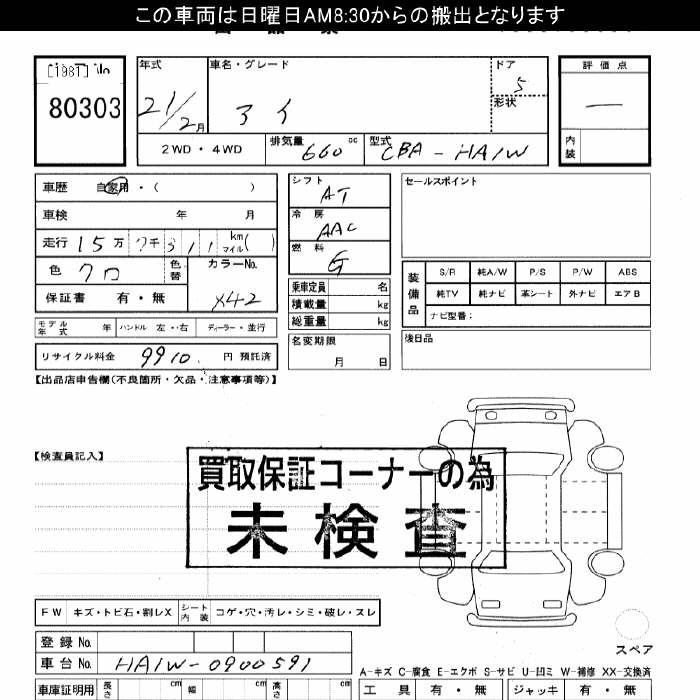 この車両は日曜日AM8:30からの搬出となります
[1987] No
80303
年式
21/2月
車名・グレード
アイ
ドア
5
形状
評価点
—
内装
2WD・4WD
排気量 660 cc
型式 CBA-HA1W
車歴 自家用・( )
車検 年 月
走行 15万7千311 km マイル( )
色 クロ
色替
カラーNo.
X42
保証書 有・無
モデル年式 年
ハンドル 左・右
ディーラー・並行
リサイクル料金 9910 円 預託済
シフト
AT
冷房
AAC
燃料
G
乗車定員 名
積載量 kg
総重量 kg
名変期限
月 日
セールスポイント
装備品
S/R 純A/W P/S P/W ABS
純TV 純ナビ 革シート 外ナビ エアB
ナビ型番:
後日品
【出品店申告欄(不良箇所・欠品・注意事項等)】
【検査員記入】
買取保証コーナーの為
未検査
FW キズ・トビ石・割レX
シート内装 コゲ・穴・汚レ・シミ・破レ・スレ
登録No.
車台No. HA1W-0900591
スペア
A-キズ C-腐食 E-エクボ S-サビ U-凹ミ W-補修 XX-交換済
車庫証明用 長さ cm 幅 cm 高さ cm
工具 有・無 ジャッキ 有・無